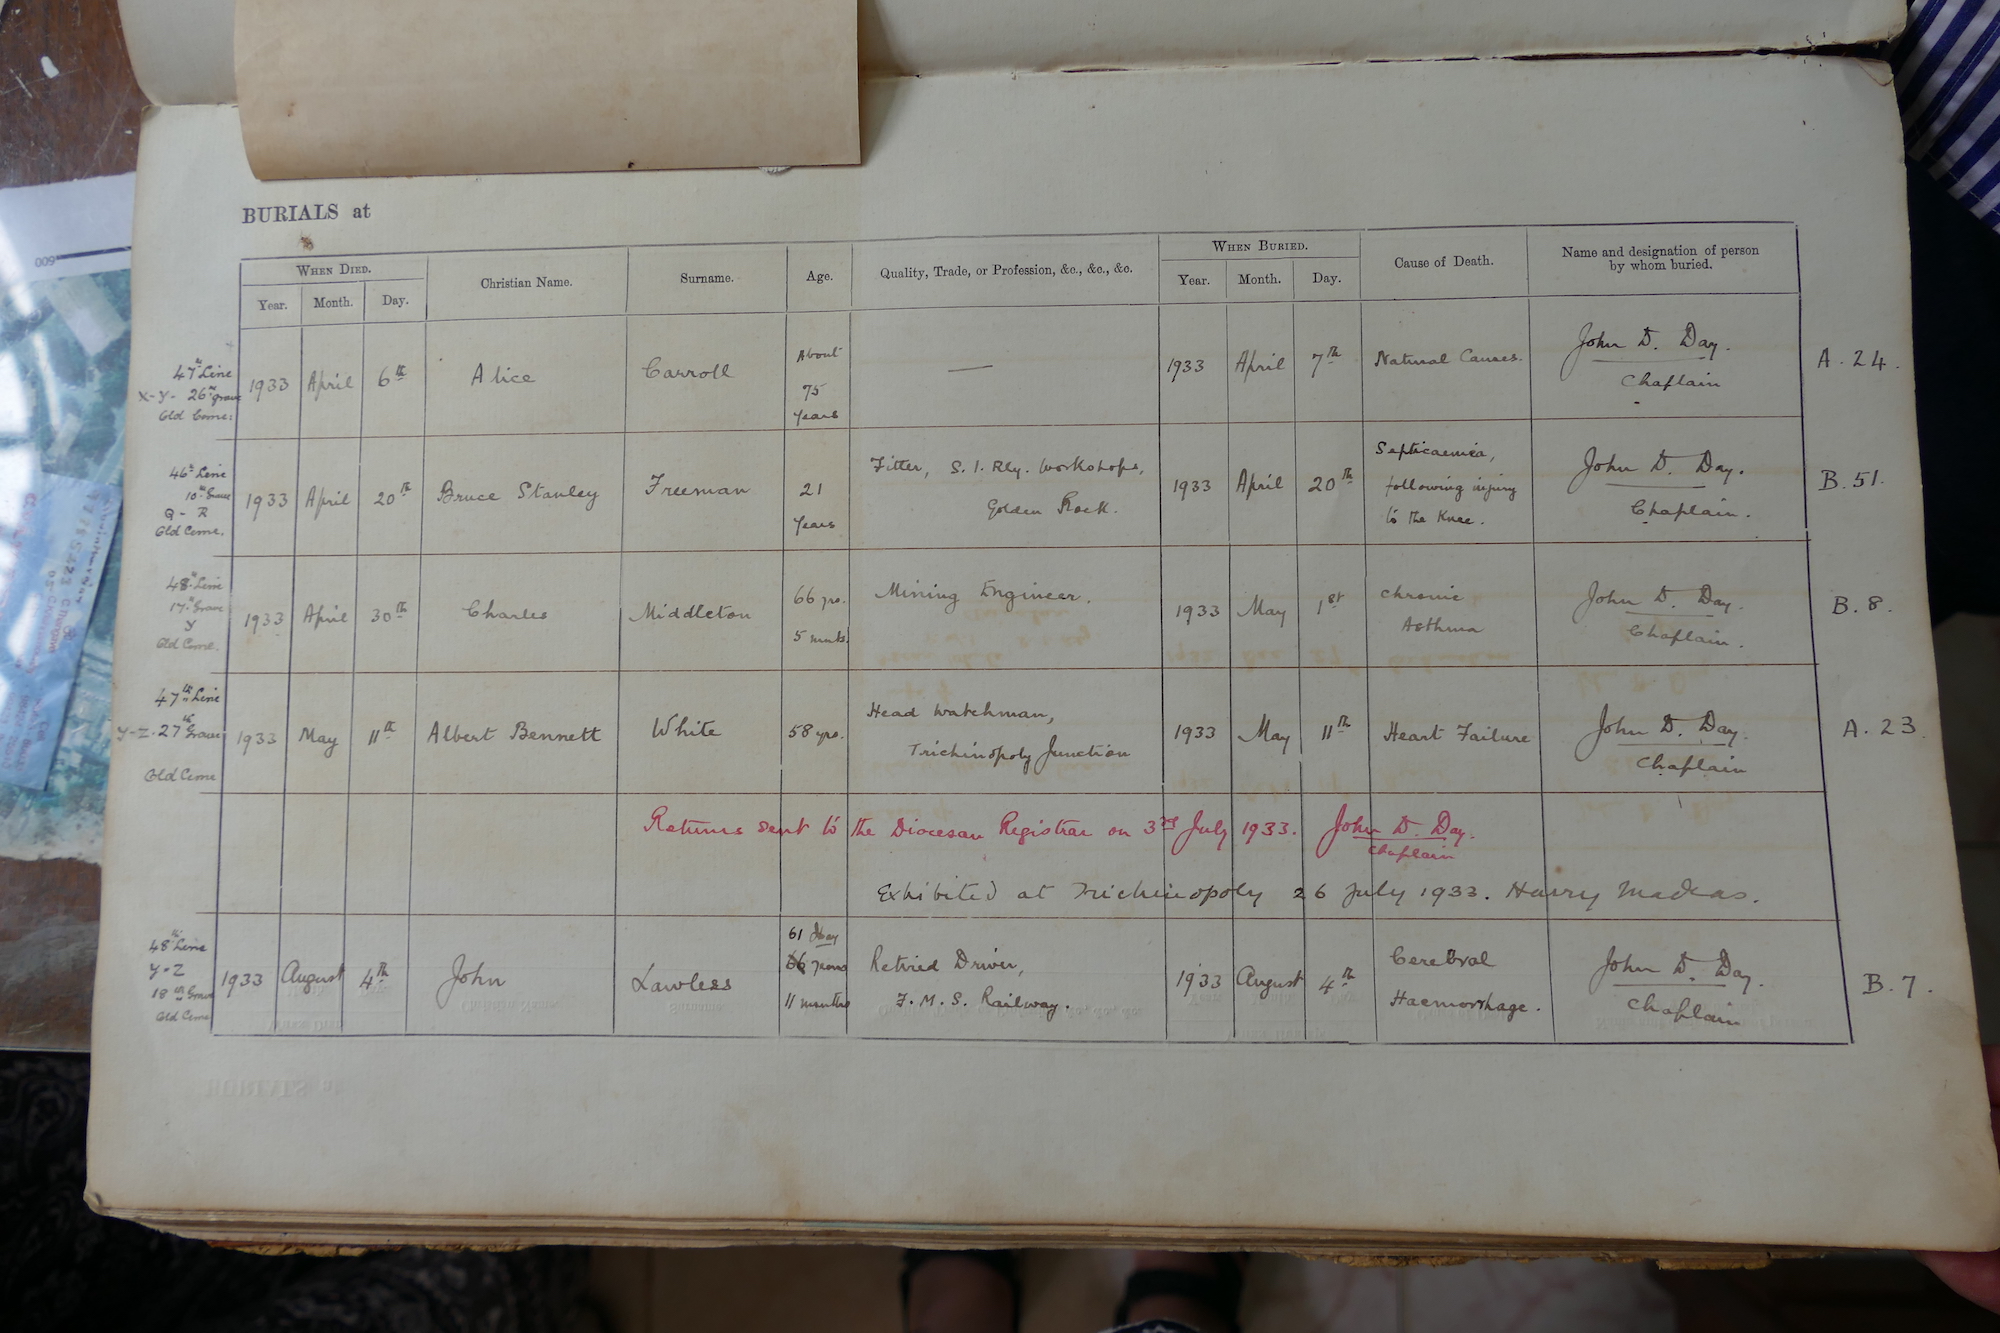 BURIALS at
WHEN DIED.
Year.
Month.
Day.
Christian Name.
Surname.
Age.
Quality, Trade, or Profession, &c., &c., &c.
WHEN BURIED.
Year.
Month.
Day.
Cause of Death.
Name and designation of person
by whom buried.
47th Line
X-Y- 26th grave
Old Ceme:
1933 April 6th Alice Carroll
About
75
years
—
1933 April 7th Natural Causes.
John D. Day.
Chaplain
A. 24.
46th Line
10th Grave
Q - R
Old Ceme.
1933 April 20th Bruce Stanley Freeman
21
years
Fitter, S. I. Rly. Workshops,
Golden Rock.
1933 April 20th
Septicaemia,
following injury
to the Knee.
John D. Day.
Chaplain.
B. 51.
48th Line
17th Grave
Y
Old Ceme.
1933 April 30th Charles Middleton
66 yrs.
5 mnths
Mining Engineer.
1933 May 1st
Chronic
Asthma
John D. Day.
Chaplain.
B. 8.
47th Line
Y-Z. 27th Grave
Old Ceme
1933 May 11th Albert Bennett White
58 yrs.
Head Watchman,
Trichinopoly Junction
1933 May 11th Heart Failure
John D. Day.
Chaplain
A. 23.
Returns sent to the Diocesan Registrar on 3rd July 1933. John D. Day.
Chaplain
Exhibited at Trichinopoly 26 July 1933. Harry Madras.
48th Line
Y-Z
18th Grave
Old Ceme
1933 August 4th John Lawless
61
years
11 months
Retired Driver,
F. M. S. Railway.
1933 August 4th
Cerebral
Haemorrhage.
John D. Day.
Chaplain
B. 7.
009